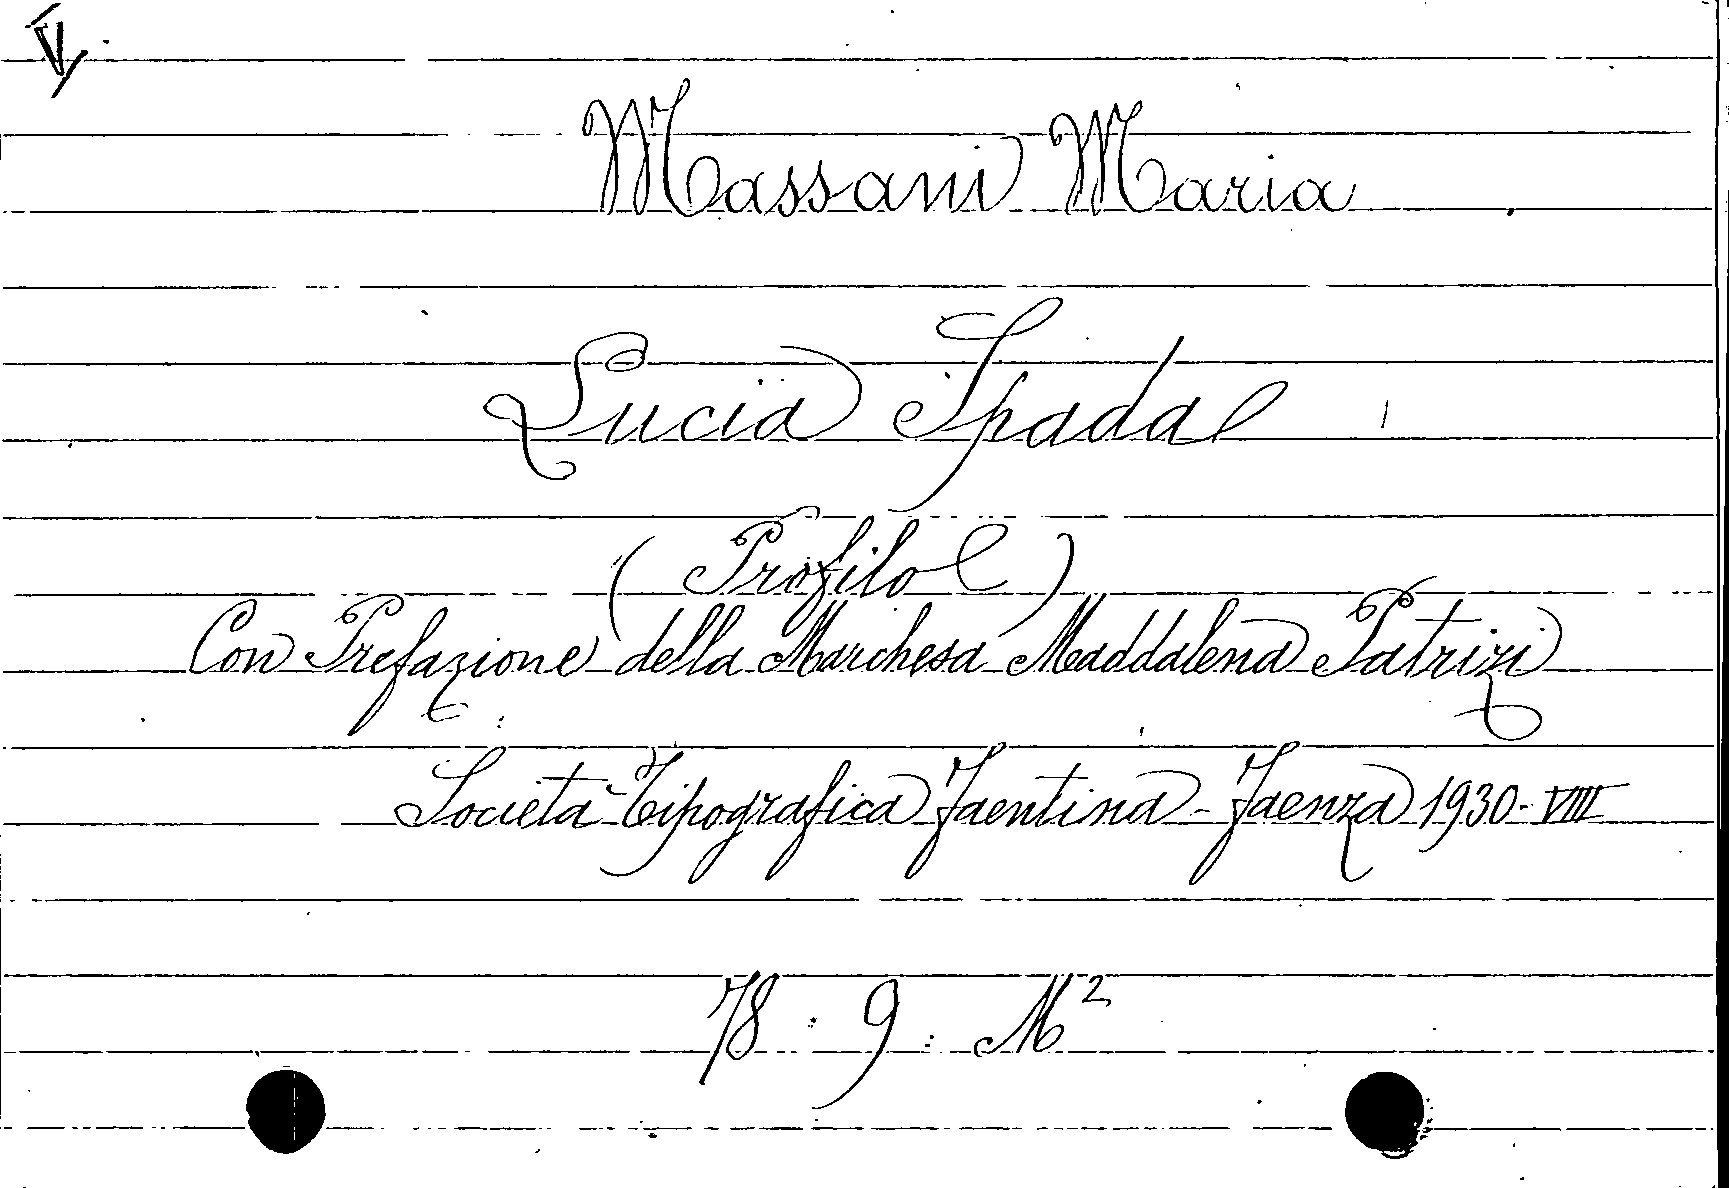 V
Massani Maria
Lucia Spada
(Profilo)
Con Prefazione della Marchesa Maddalena Patrizi
Società Tipografica Faentina - Faenza 1930-VIII
78. 9. M²